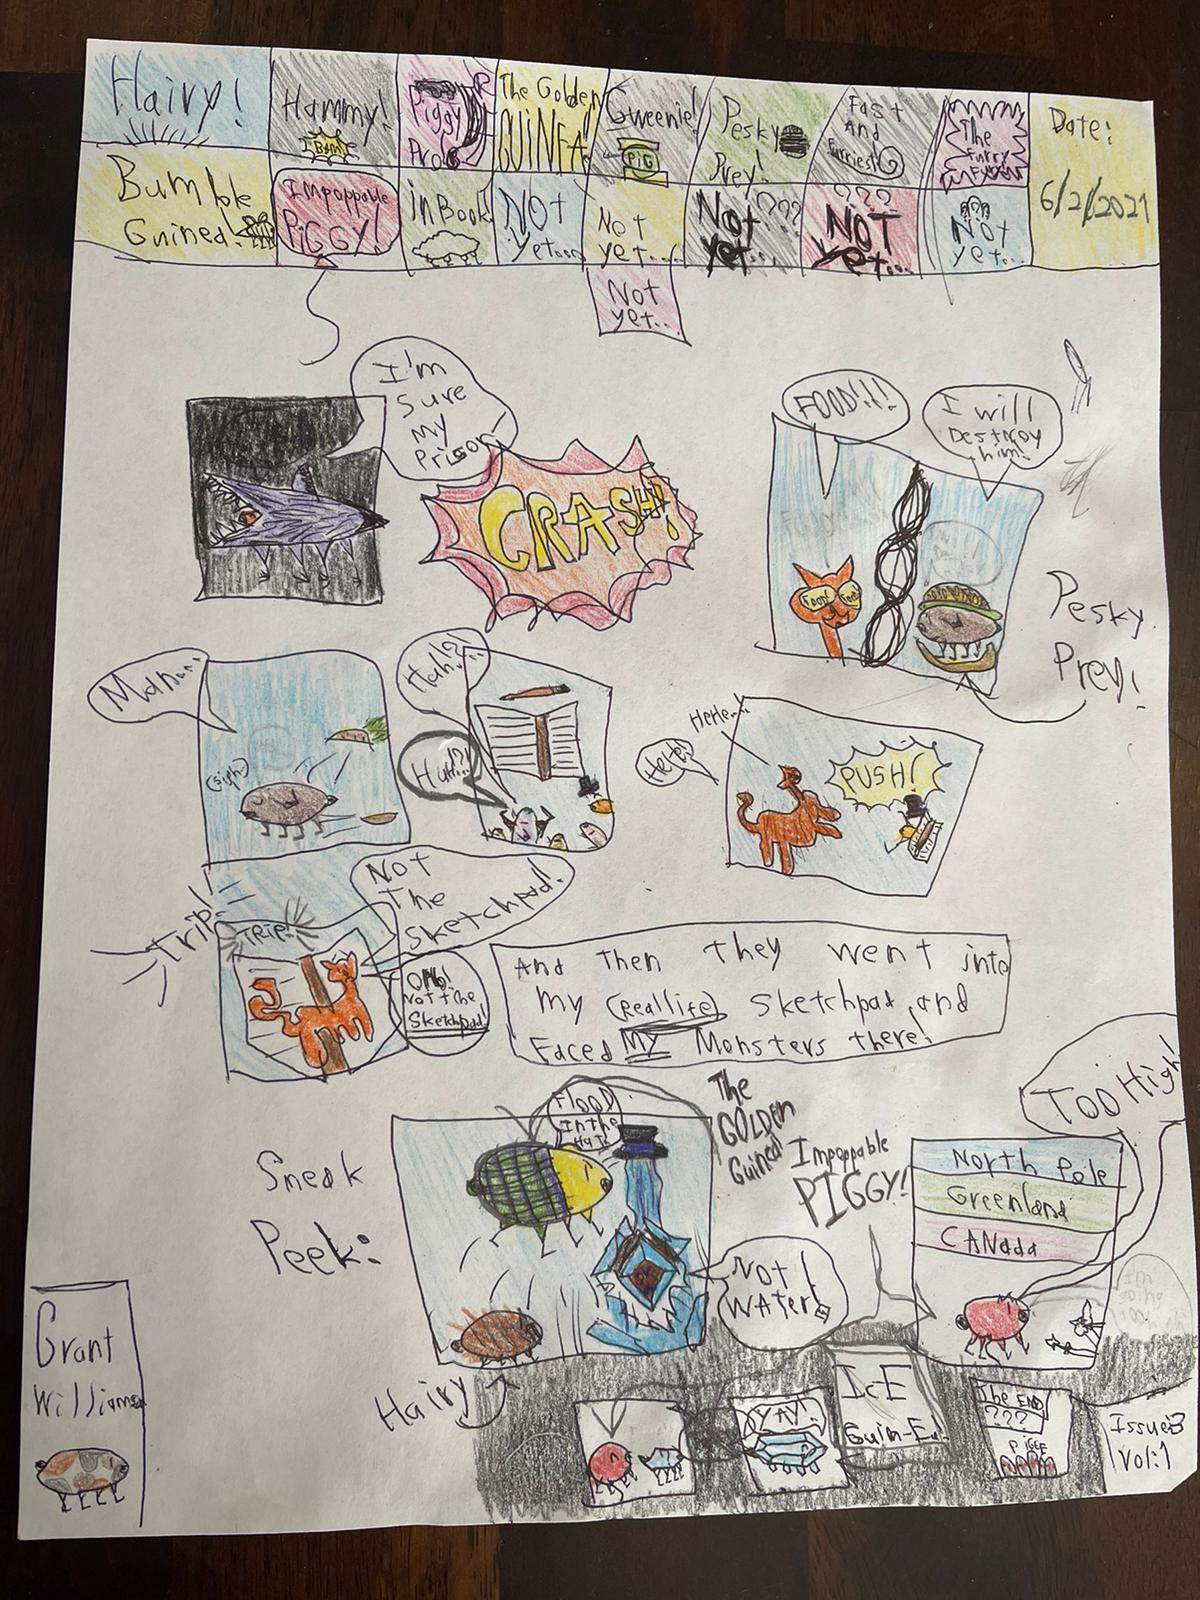 Hairy!
Hammy!
Bam!
Piggy
Pro
The Golden
GUINEA
Gweenie!
PiG
Pesky
Prey!
Fast
And
Furriest
The
Furry
Date:
6/2/2021
Bumble
Guinea!
Impoppable
PiGGY!
in Book!
NOT
yet...
Not
yet....
Not ???
yet...
???
NOT
yet...
???
Not
yet...
Not
yet...
I'm
Sure
my
Prison
CRASH!
FOOD!!!
I will
Destroy
him!
Food!
Pesky
Prey!
Man...
(sigh)
Huh?!
Huh?!
HeHe..!
HeHe!
PUSH!
Trip!
TRIP!
NOT
The
Sketchpad!
Oh No!
Not the
Sketchpad!
And then they went into
my (Real life) sketchpad and
Faced MY Monsters there!
Sneak
Peek:
Flood
In the
Hat!
The
GOLDEN
Guinea
NOT
WATER!
Hairy
Impoppable
PIGGY!
TOO High!
North Pole
Greenland
CANada
YAY!
IcE
Guin-Ea!
The END
???
PiGGE
Issue:3
Vol:1
Grant
Williams